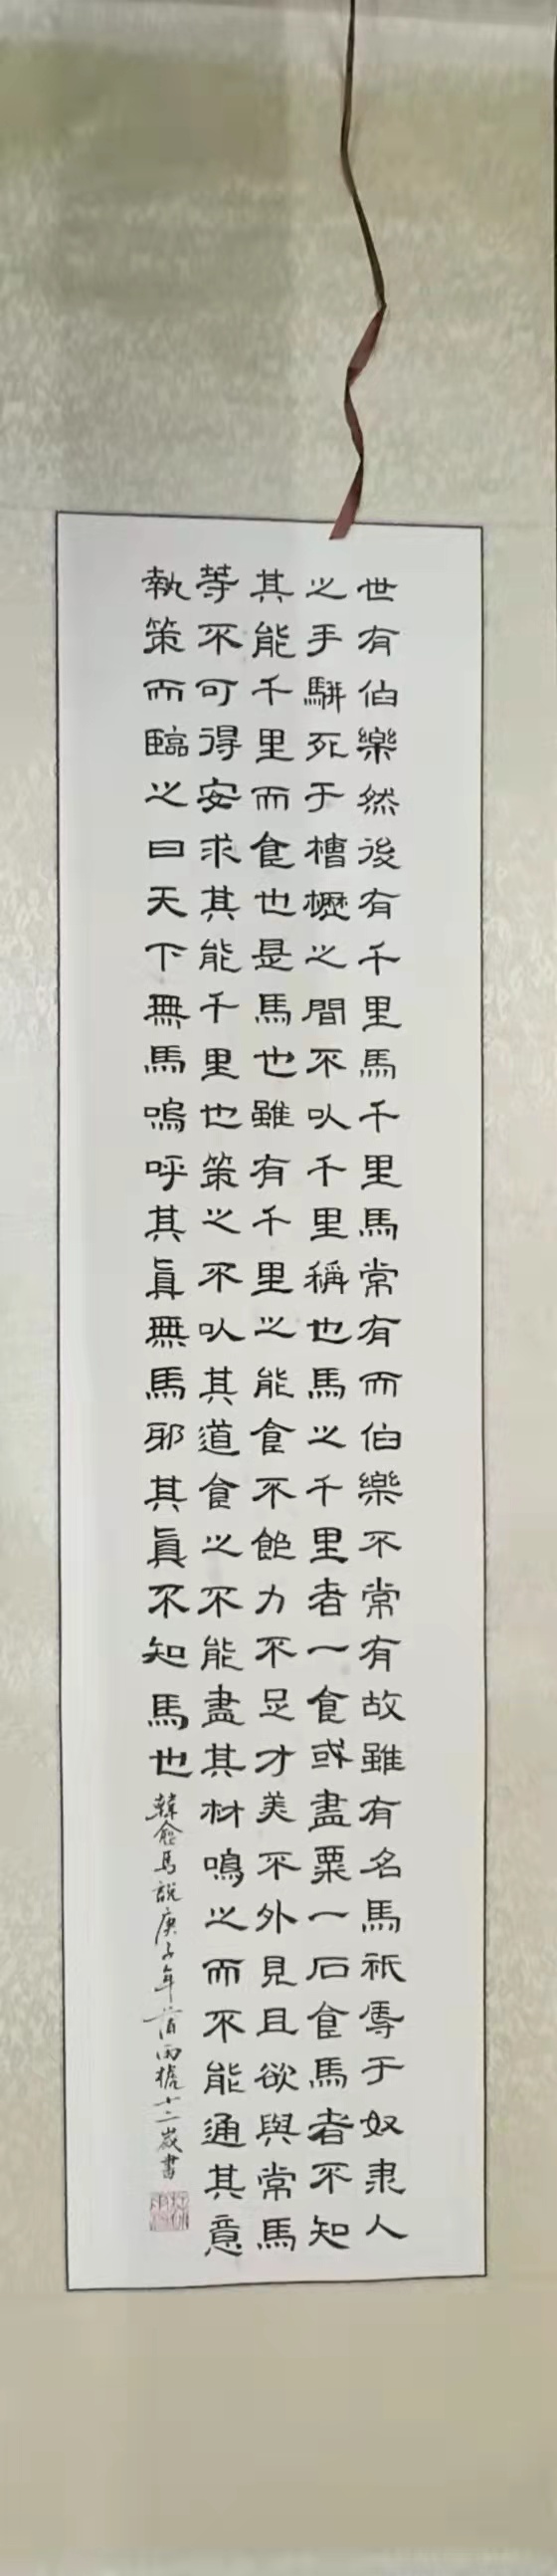 世有伯樂然後有千里馬千里馬常有而伯樂不常有故雖有名馬祇辱于奴隶人
之手駢死于槽櫪之間不以千里稱也馬之千里者一食或盡粟一石食馬者不知
其能千里而食也是馬也雖有千里之能食不飽力不足才美不外見且欲與常馬
等不可得安求其能千里也策之不以其道食之不能盡其材鳴之而不能通其意
執策而臨之曰天下無馬嗚呼其真無馬邪其真不知馬也
韓愈馬說庚子年雨樵十二歲書